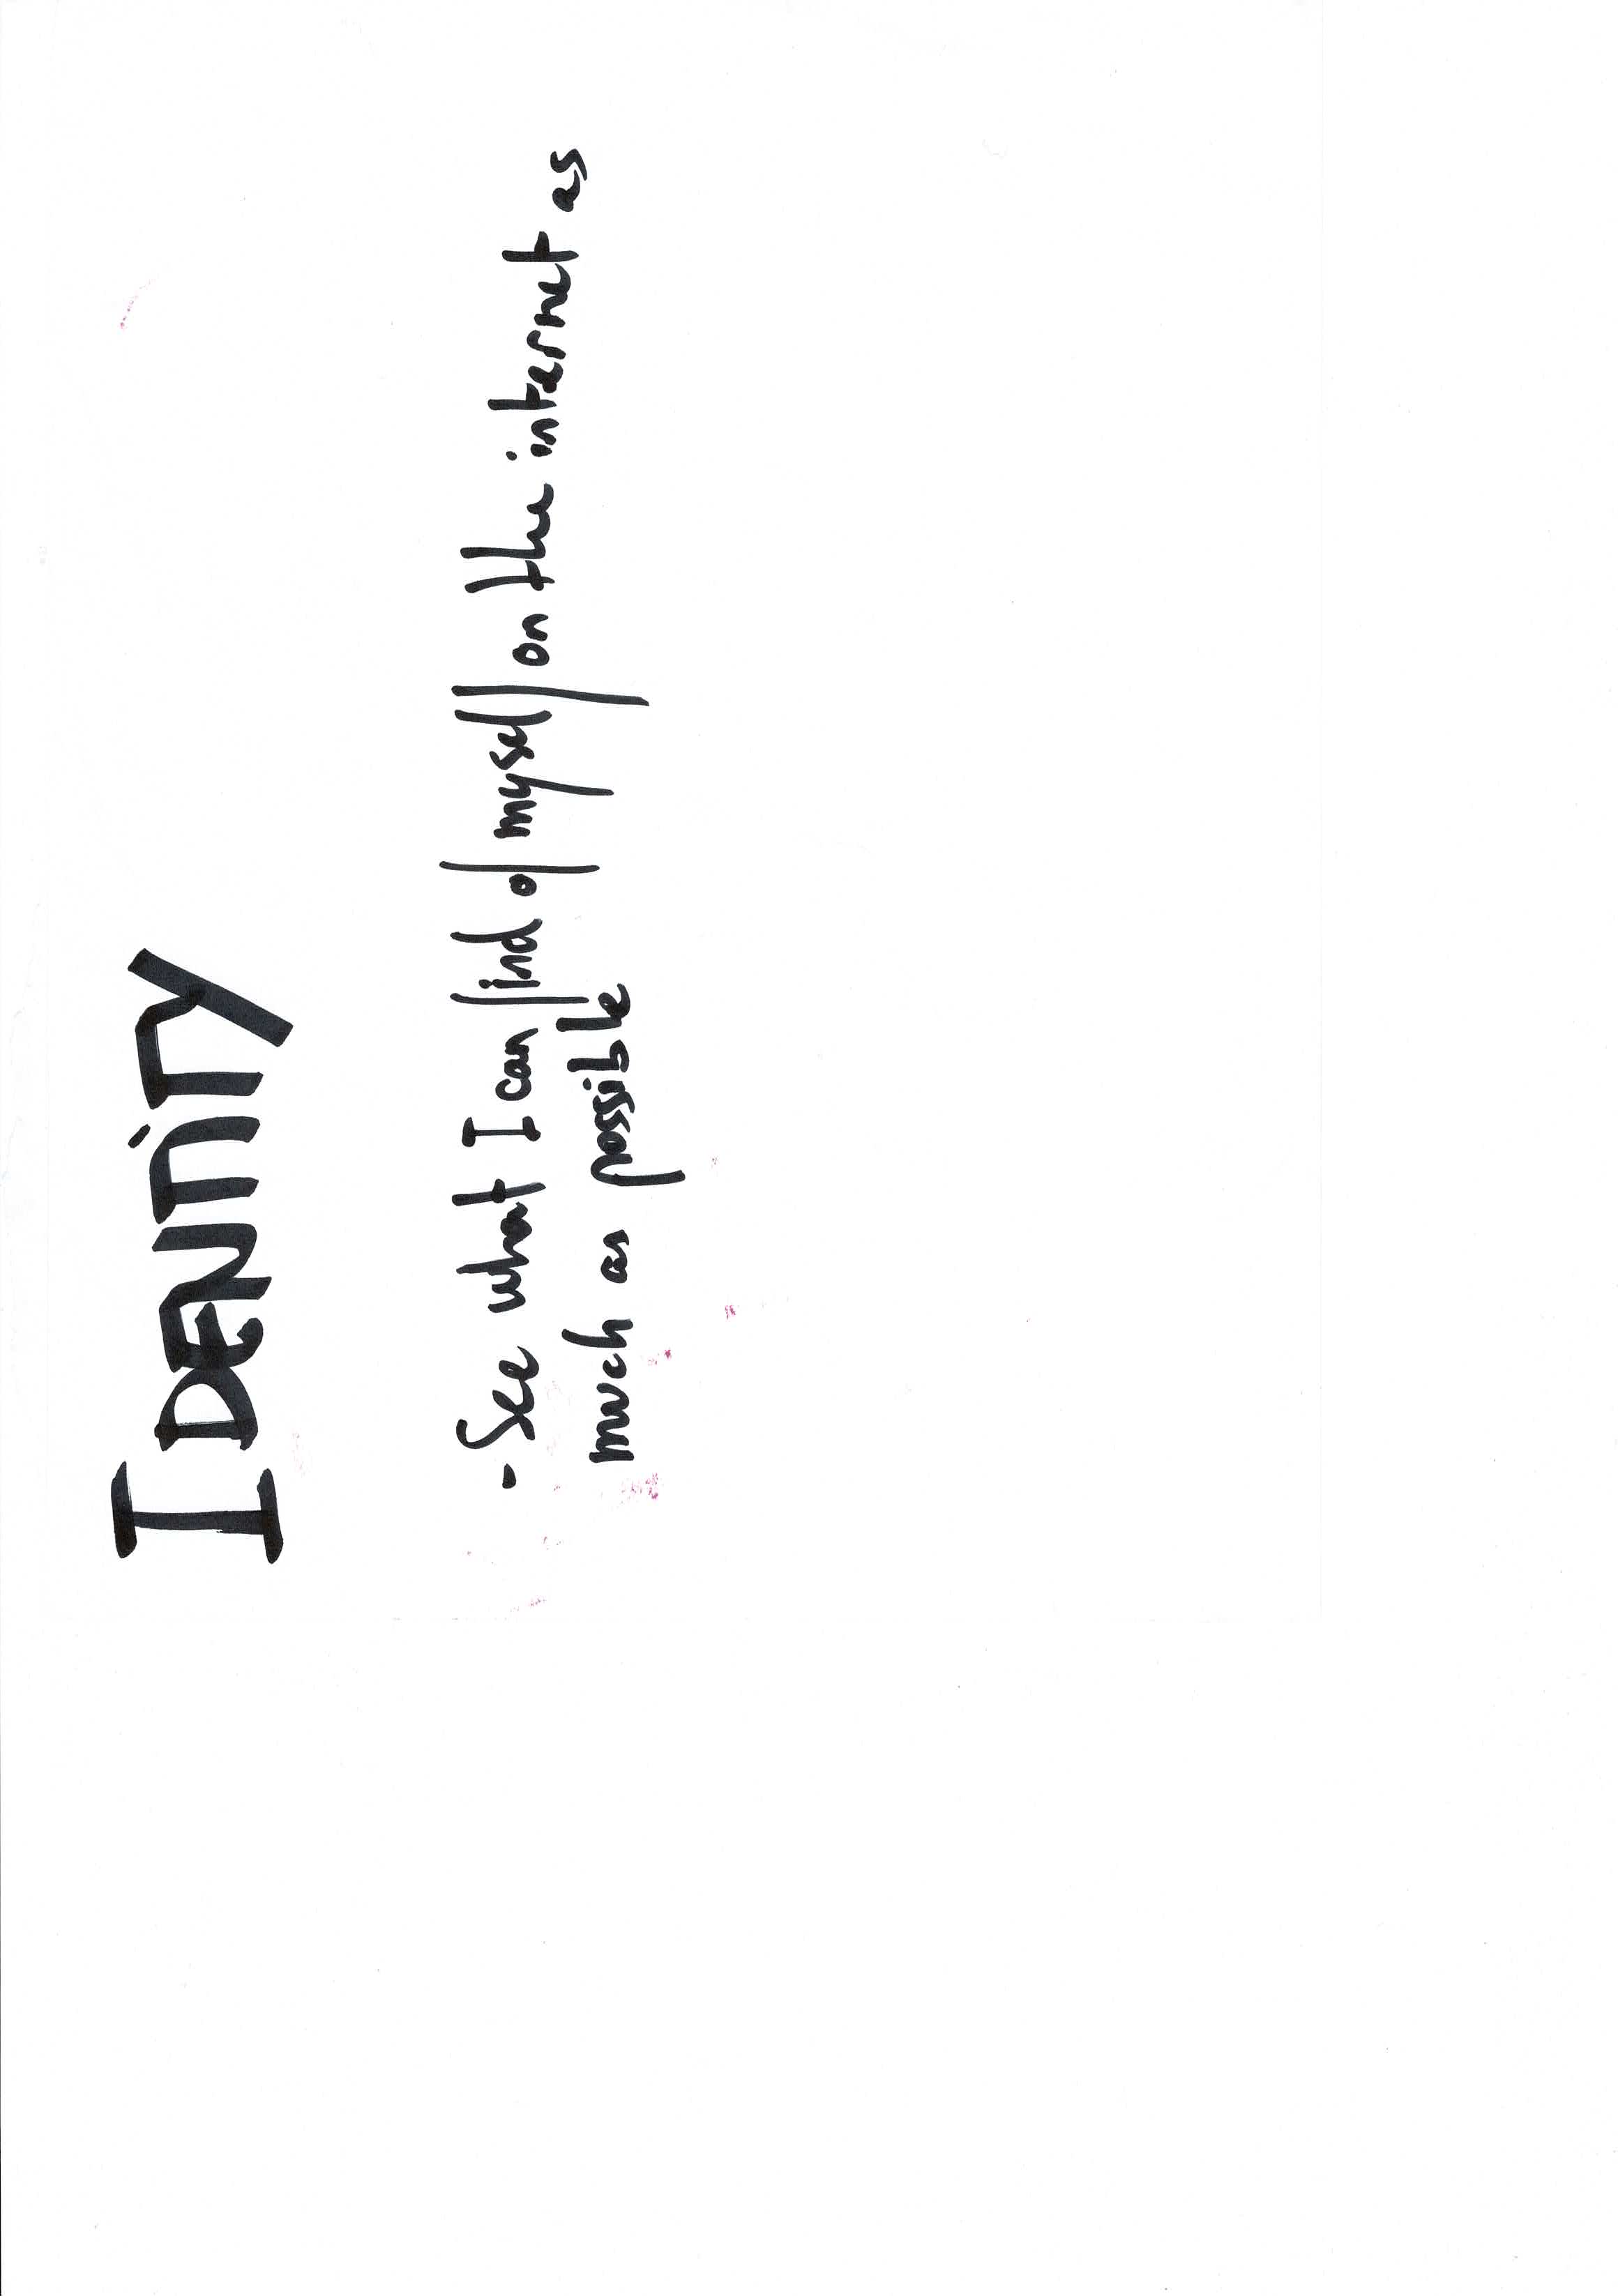 IDENTITY
- See what I can find of myself on the internet as
much as possible